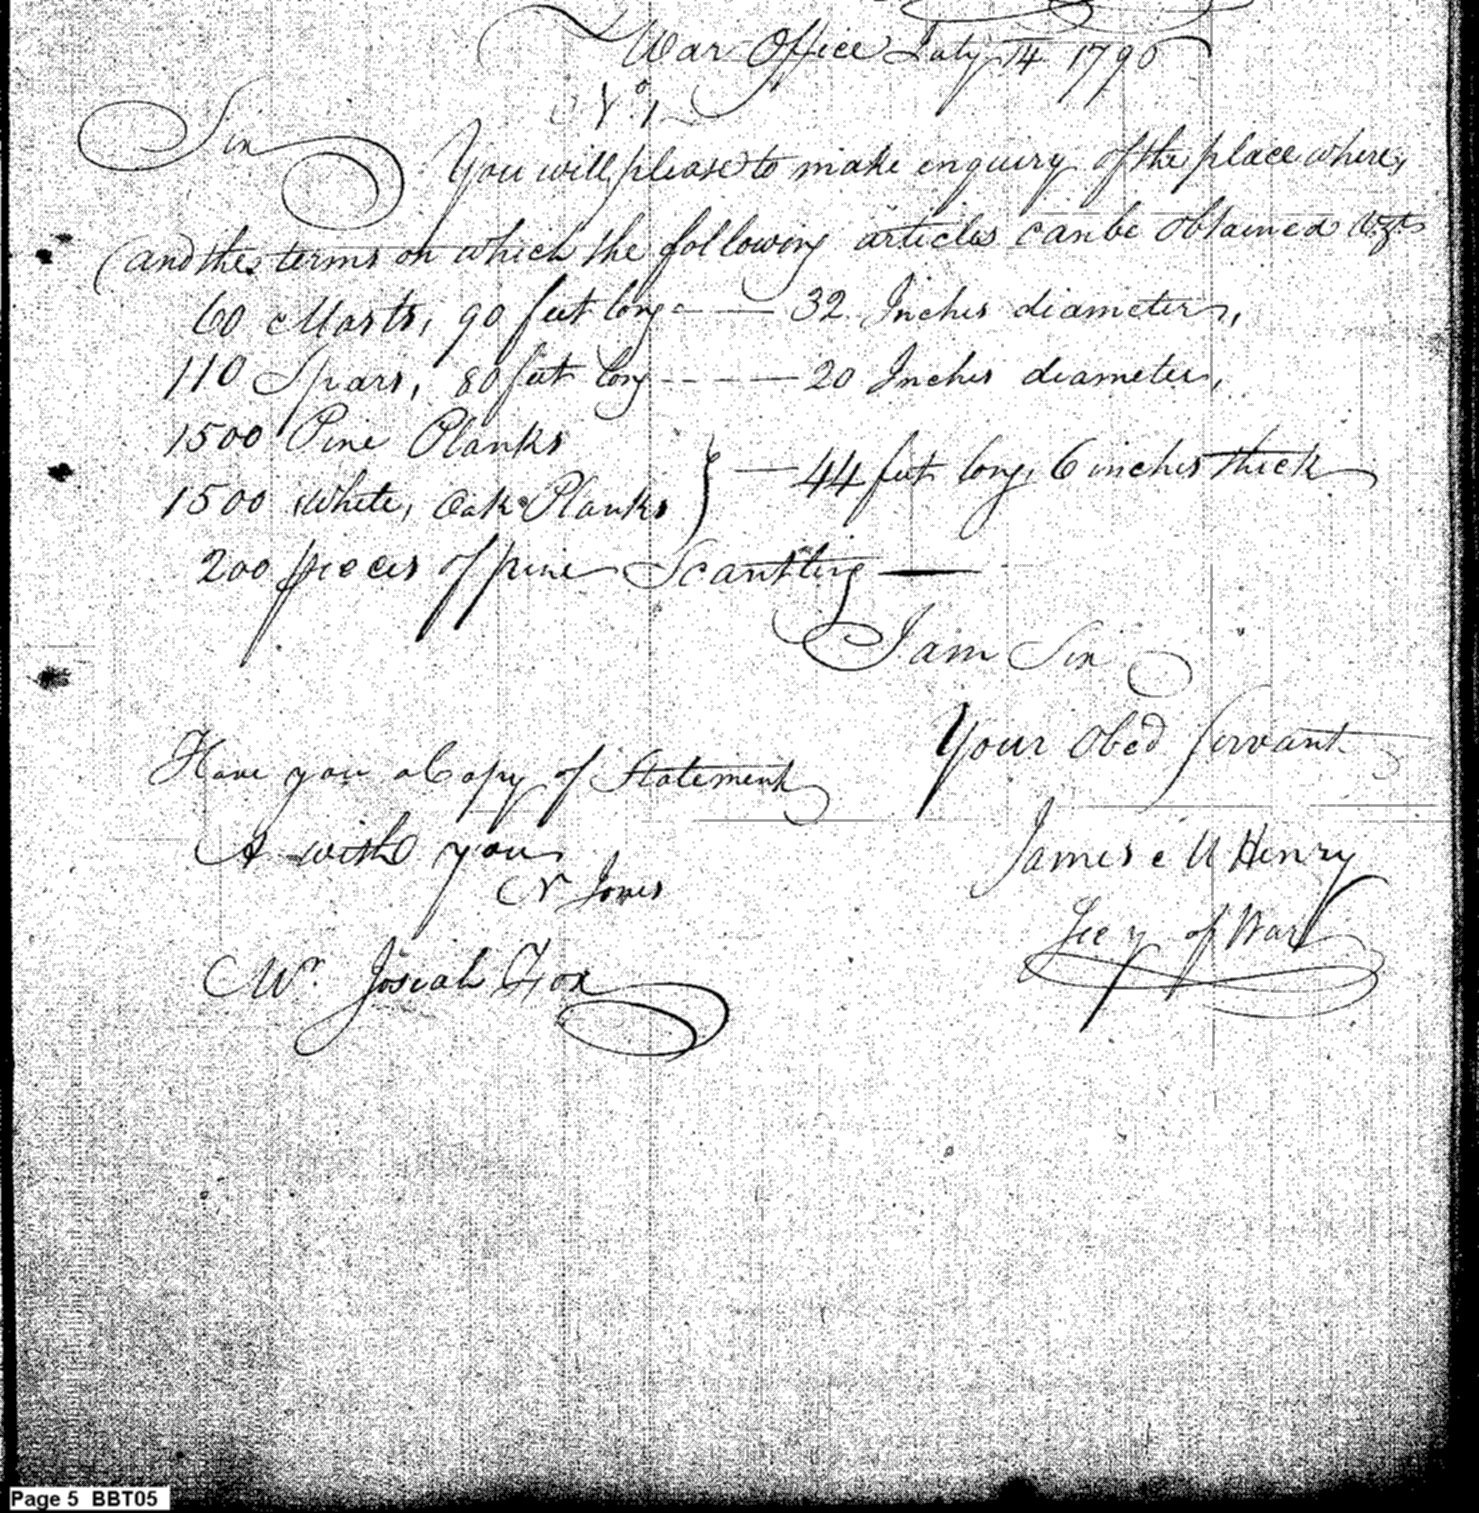 War Office July 14 1796
No. 1
Sir
You will please to make enquiry of the place where,
and the terms on which the following articles can be obtained Vizt
60 Masts, 90 feet long - — 32 Inches diameter,
110 Spars, 80 feet long - - - — 20 Inches diameter,
1500 Pine Planks
1500 White, Oak Planks } — 44 feet long, 6 inches thick
200 pieces of pine Scantling —
I am Sir
Your Obed Servant
Have you a Copy of Statement
A wish you
N Jones
James McHenry
Secy of War
Mr. Josiah Fox
Page 5 BBT05